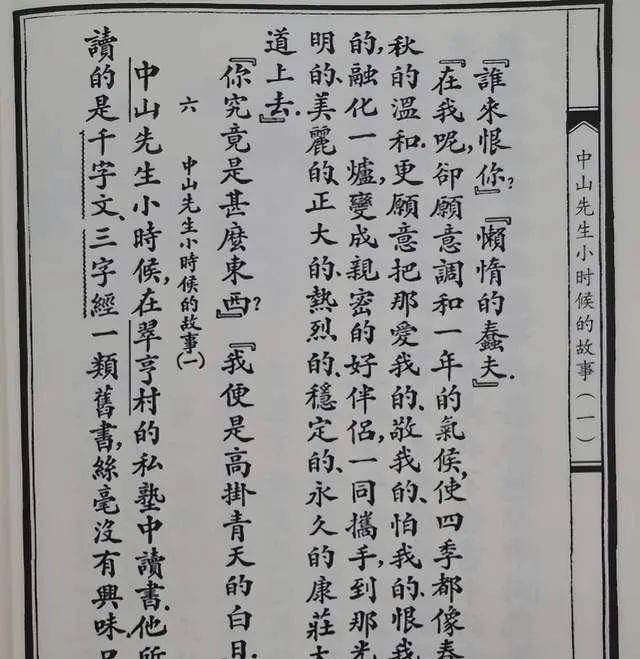 中山先生小时候的故事（一）
『誰來恨你？』『懶惰的蠢夫.』
『在我呢,卻願意調和一年的氣候,使四季都像春
秋的溫和.更願意把那愛我的、敬我的、怕我的、恨我
的,融化一爐,變成親密的好伴侶,一同攜手,到那光
明的、美麗的、正大的、熱烈的、穩定的、永久的康莊大
道上去.』
『你究竟是甚麼東西？』『我便是高掛青天的白日.
六　中山先生小時候的故事(一)
中山先生小時候,在翠亨村的私塾中讀書.他所
讀的是千字文、三字經一類舊書,絲毫沒有興味.